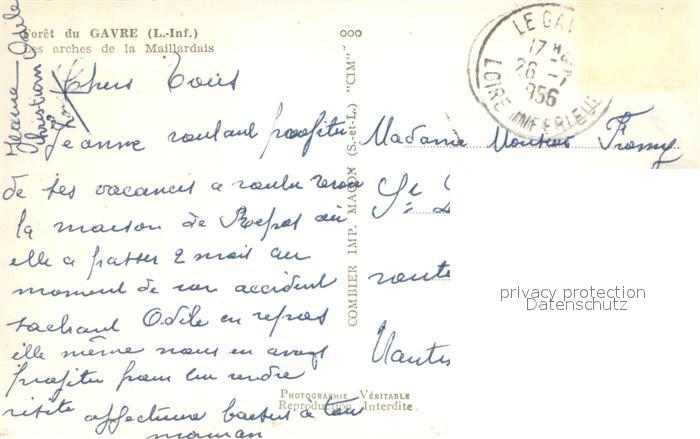 Forêt du GAVRE (L.-Inf.)
Les arches de la Maillardais
Jeanne
Christian Odile
Chers Tous
Jeanne voulant profiter
de ses vacances a voulu revoir
la maison de Repos où
elle a passer 2 mois au
moment de son accident
sachant Odile en repos
elle même nous en avons
profiter pour lui rendre
visite affectueux baisers à tous
maman
COMBIER IMP. MACON (S.-et-L.) "CIM"
LE GAVRE
17 H
26 - 7
1956
LOIRE INFERIEURE
Madame Monsieur
St
route
Nantes
privacy protection
Datenschutz
PHOTOGRAPHIE VÉRITABLE
Reproduction Interdite